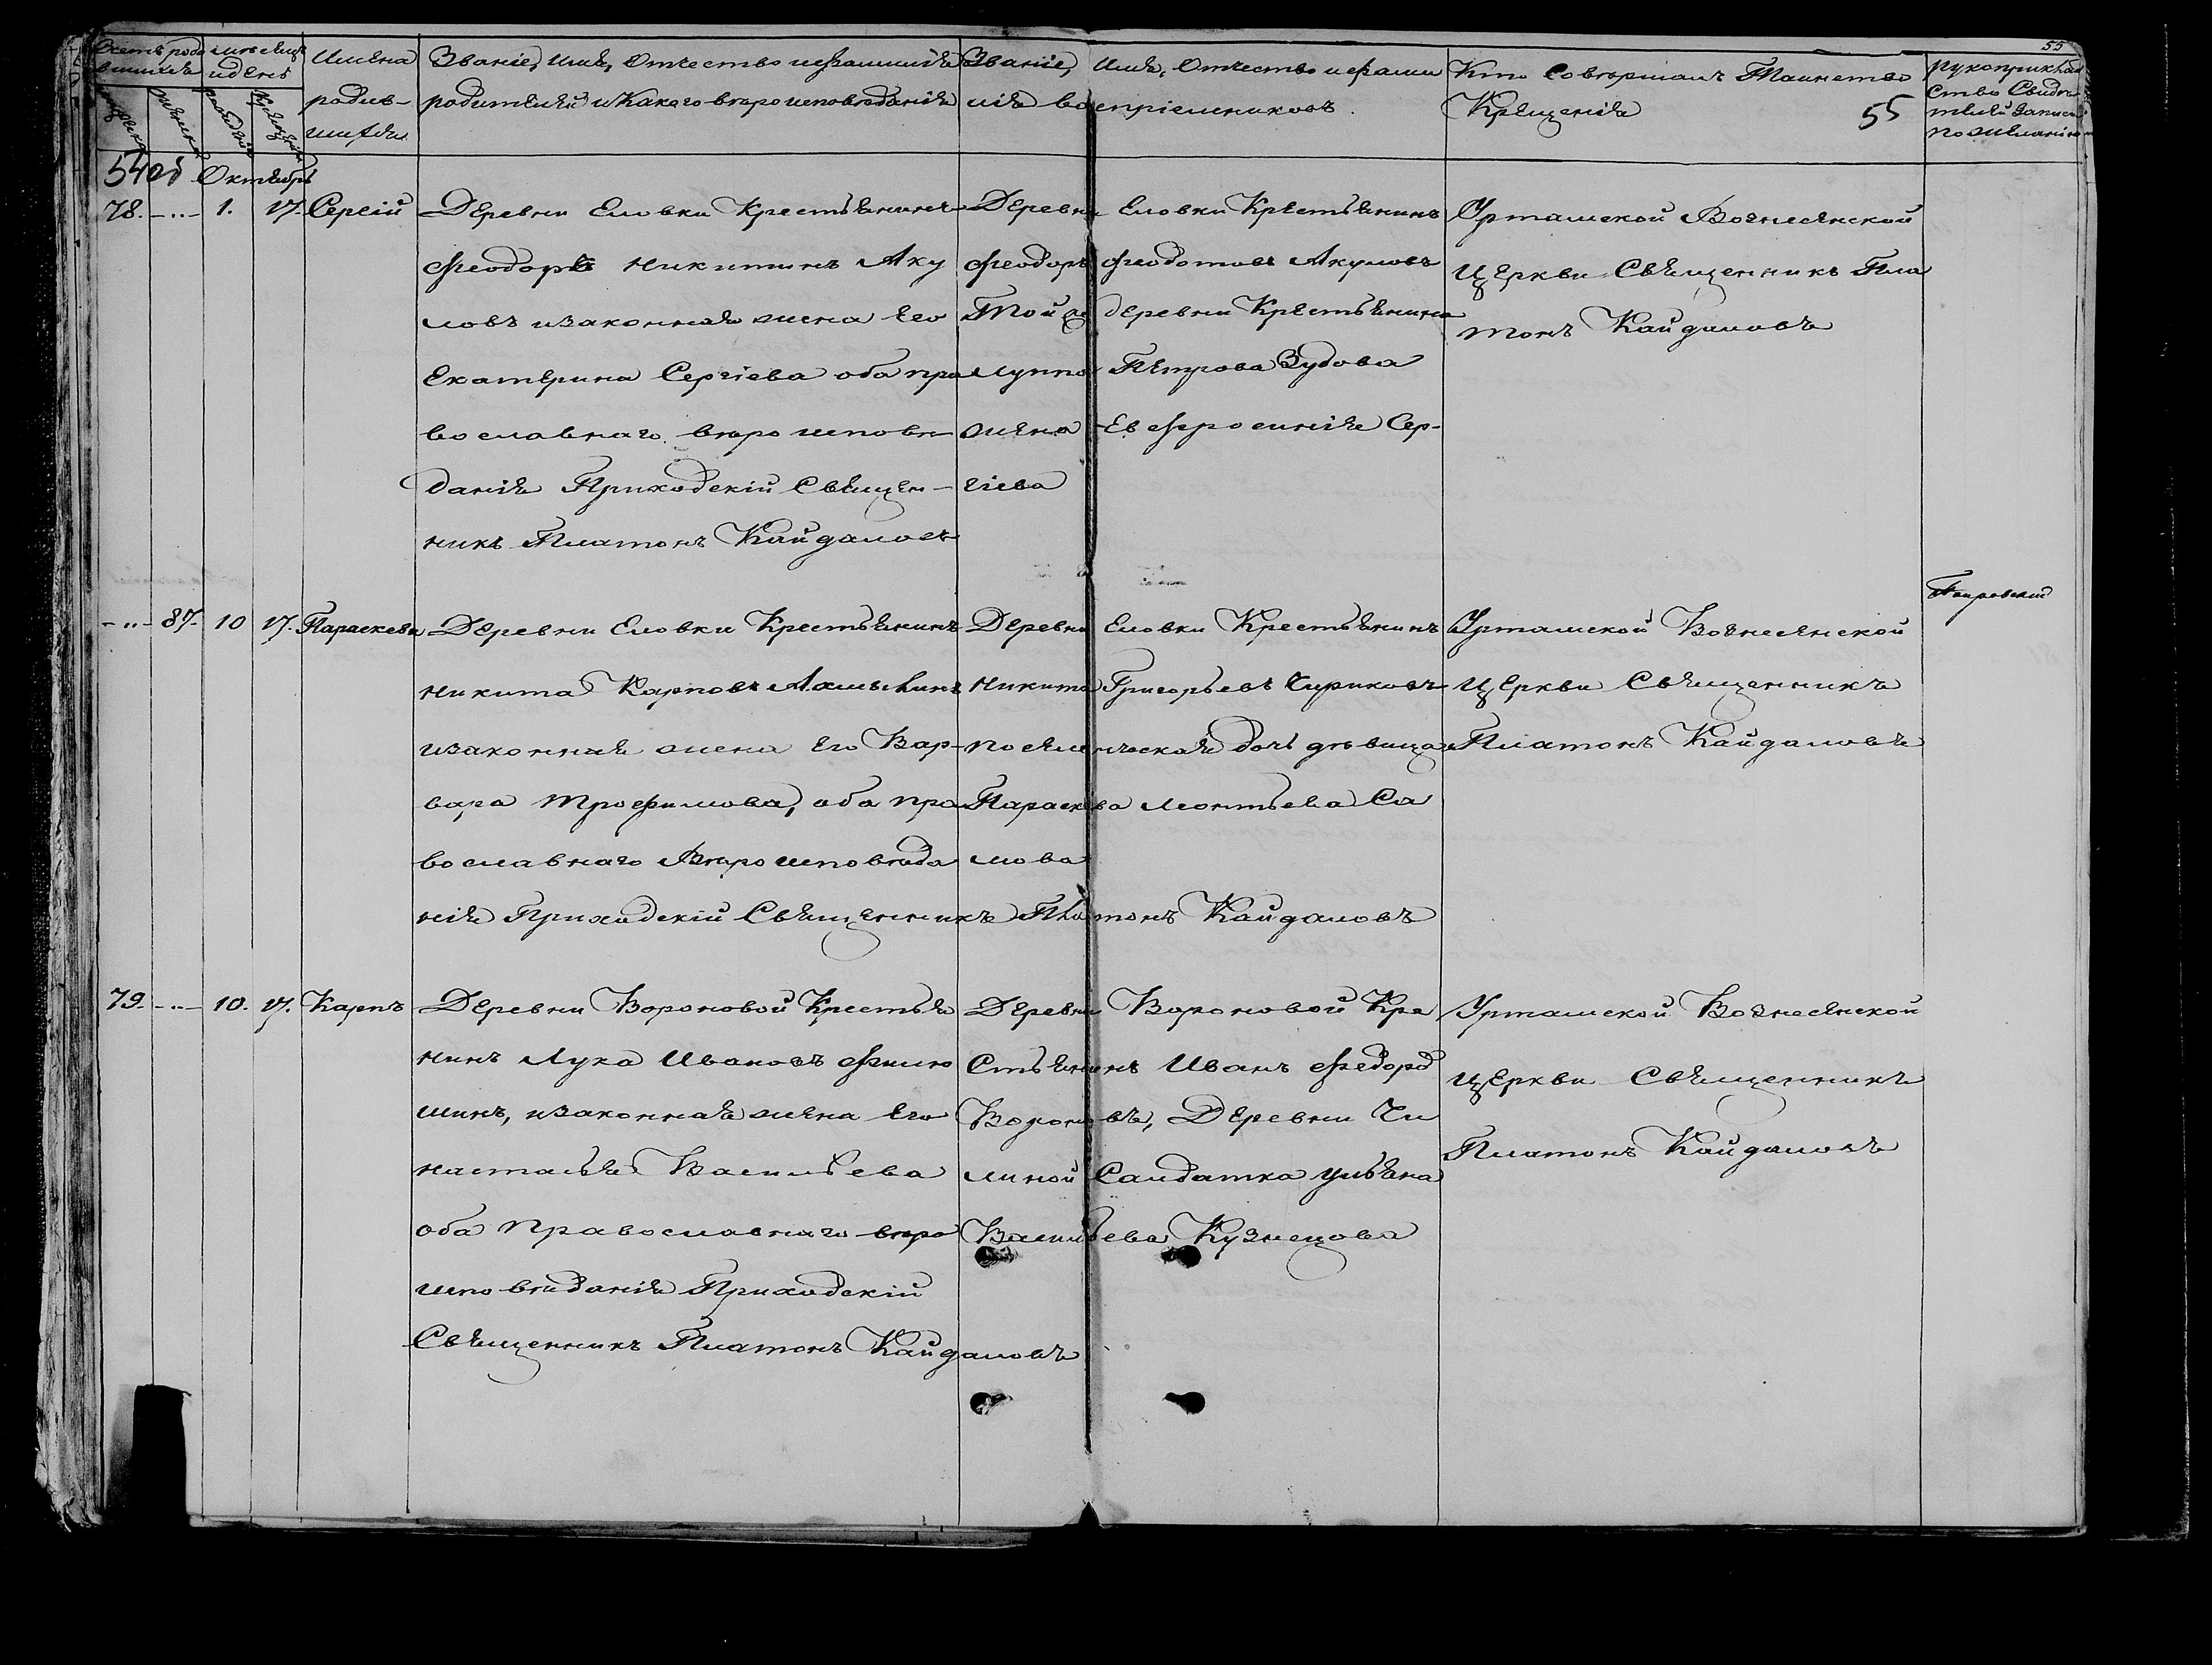 55
Счетъ родившихся
мѣсяцъ и день
Имена родившихся
Званіе, имя, отчество и фамилія родителей и какого вѣроисповѣданія
Званіе, имя, отчество и фамилія воспріемниковъ.
Кто совершалъ Таинство Крещенія
55
рукоприкладство свидѣтелей записи по желанію
54об Октябрь
78. -..- 1. 17. Сергій
Деревни Еловки Крестьянинъ
Феодоръ Никитинъ Аку
ловъ и законная жена его
Екатерина Сергіева оба пра
вославнаго вѣроисповѣ
данія Приходскій Священ-
никъ Платонъ Кайдаловъ
Деревни Еловки Крестьянинъ
Феодоръ Феодотовъ Акуловъ
Той же деревни Крестьянина
Луппа Петрова Зубова
жена Евфросинія Сер-
гіева
Урташской Вознесенской
Церкви Священникъ Пла
тонъ Кайдаловъ
-..- 87. 10 17. Параскева
Деревни Еловки Крестьянинъ
Никита Карповъ
и законная жена его Вар-
вара Трофимова, оба пра
вославнаго Вѣроисповѣда
нія Приходскій Священникъ Платонъ Кайдаловъ
Деревни Еловки Крестьянинъ
Никита Григорьевъ Чириковъ
поселенческая дочь дѣвица
Параскева Леонтьева Са
мова
Урташской Вознесенской
Церкви Священникъ
Платонъ Кайдаловъ
79. -..- 10. 17. Карпъ
Деревни Вороновой Крестья
нинъ Лука Ивановъ Филю
шинъ, и законная жена его
Настасья Васильева
оба Православнаго вѣро
исповѣданія Приходскій
Священникъ Платонъ Кайдаловъ
Деревни Вороновой Кре
стьянинъ Иванъ Федоръ
Вороновъ, Деревни Чи
линой Салдатка Ульяна
Васильева Кузнецова
Урташской Вознесенской
церкви Священникъ
Платонъ Кайдаловъ